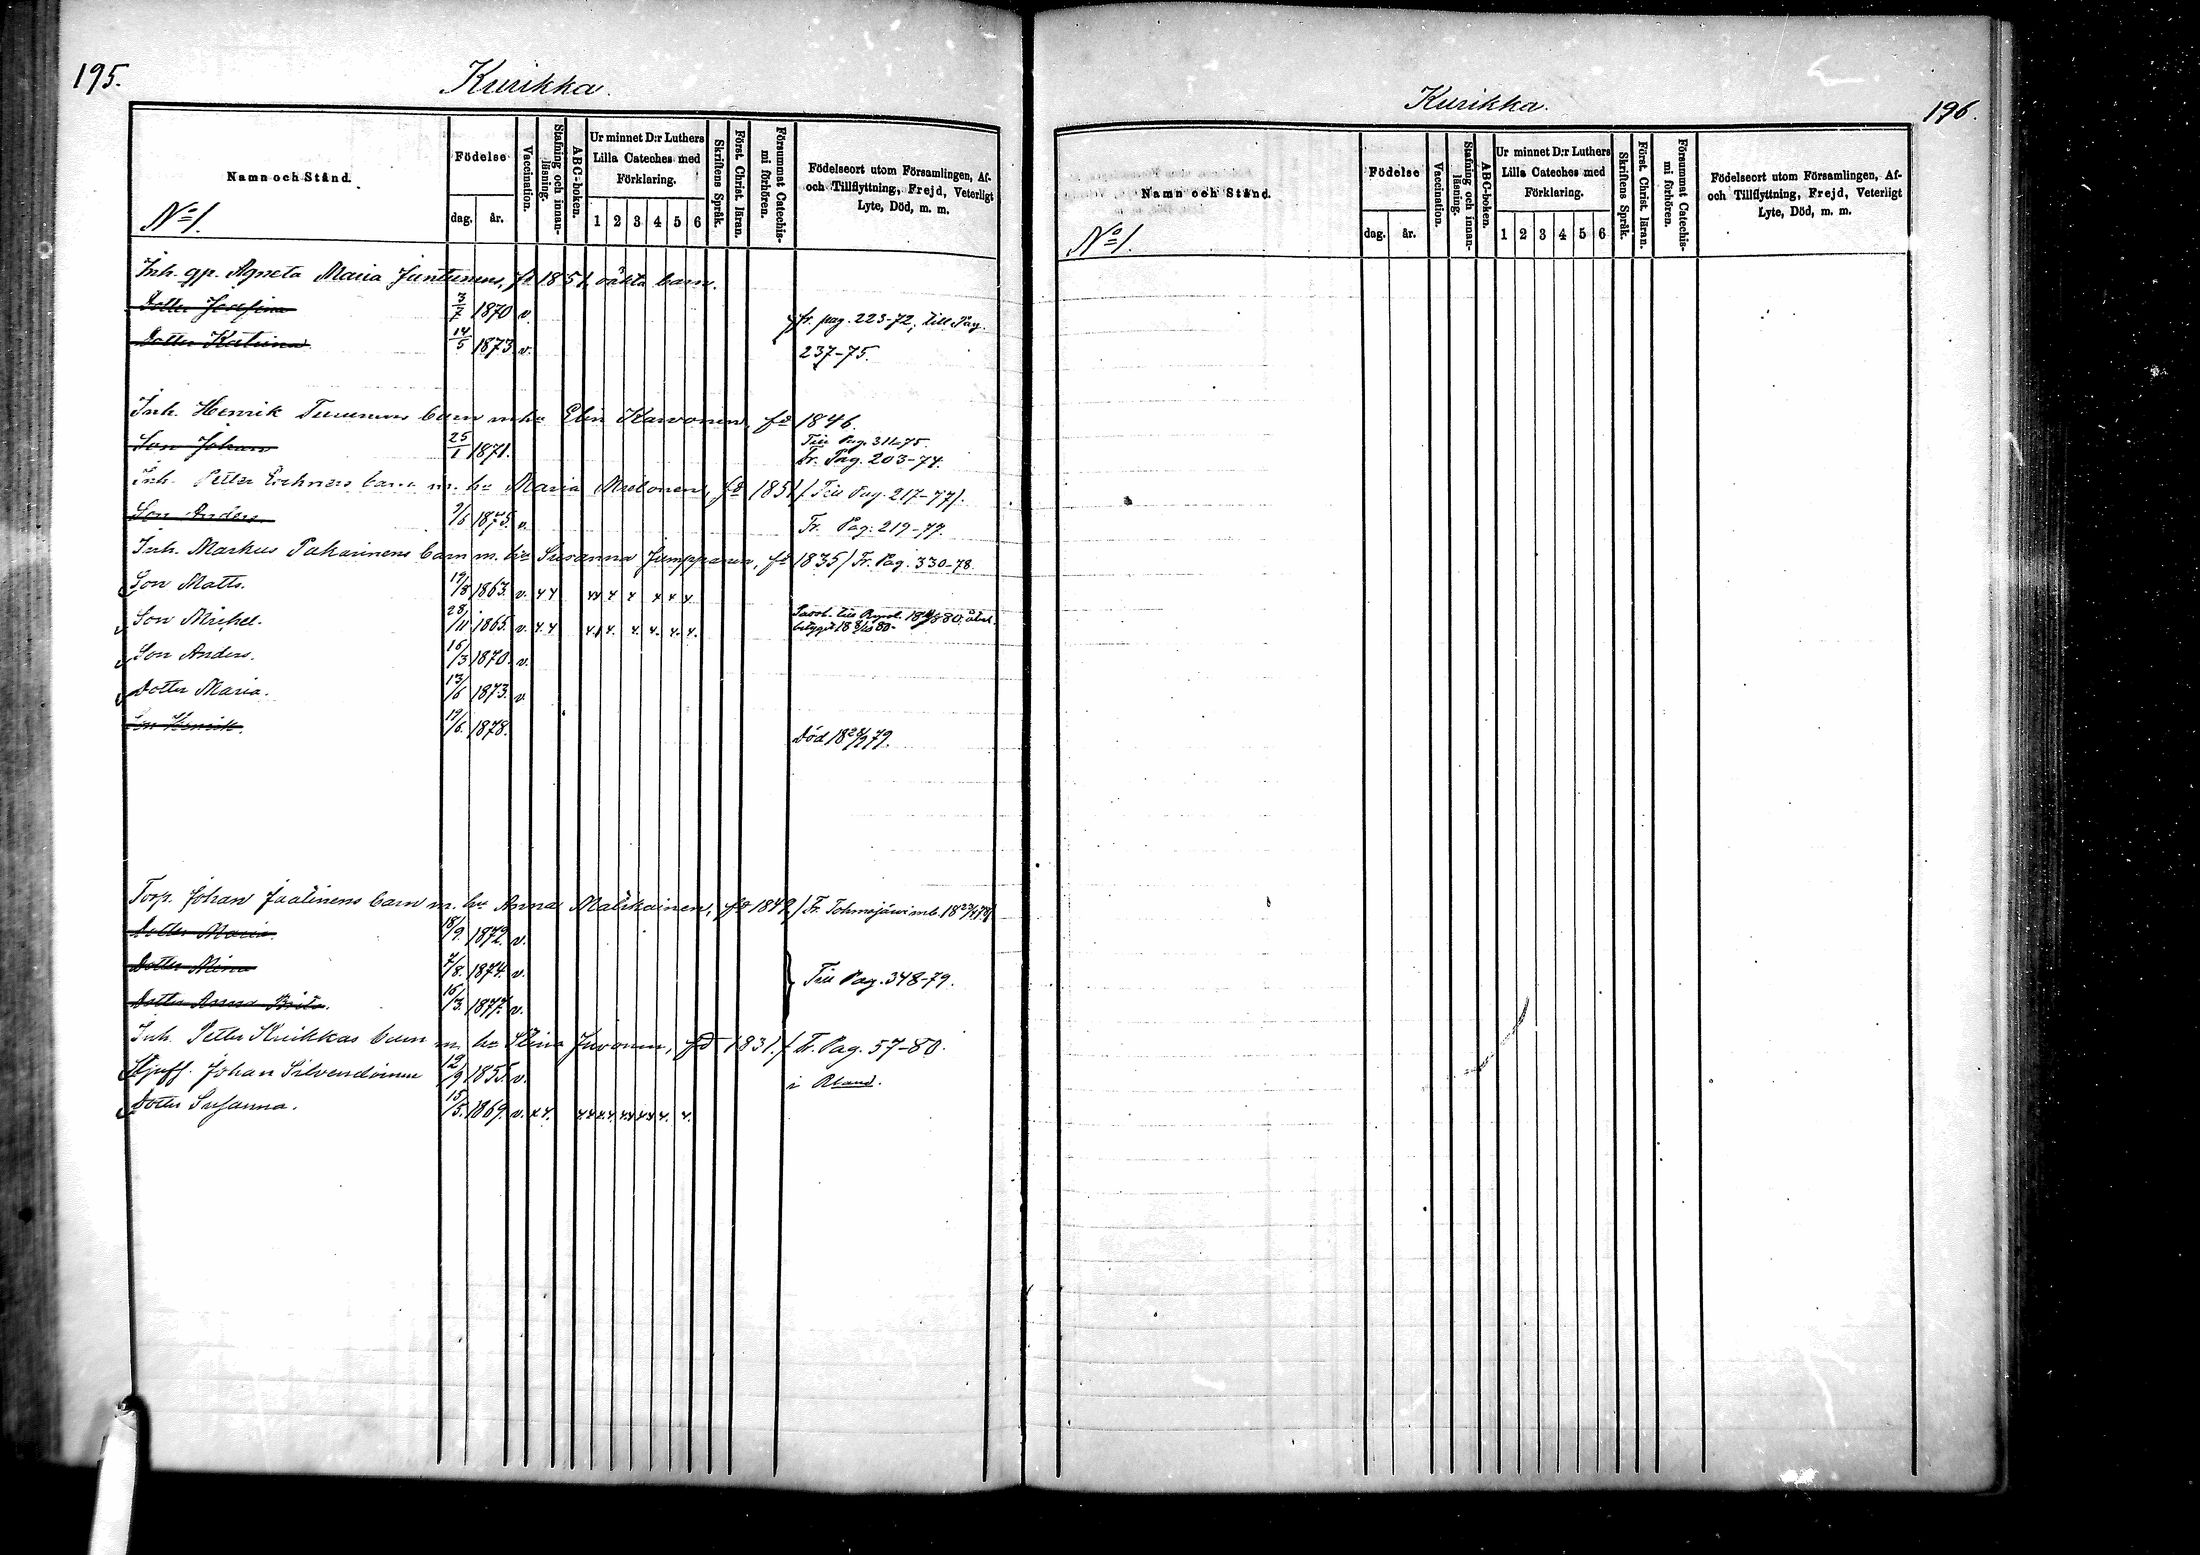 195.
Kurikka.
Namn och Stånd.
Födelse
dag. år.
Vaccination.
Stafning och innan-läsning.
ABC-boken.
Ur minnet D:r Luthers
Lilla Cateches med
Förklaring.
1 2 3 4 5 6
Skriftens Språk.
Först. Christ. läran.
Försummat Catechis-mi förhören.
Födelseort utom Församlingen, Af-
och Tillflyttning, Frejd, Veterligt
Lyte, Död, m. m.
No 1.
Inh. gp. Agneta Maria Juntunens, fd 1851, oäkta barn.
Dotter Josefina 3/7 1870 v. fr. pag. 223-72; till Pag.
Dotter Katrina 14/5 1873 v. 237-75.
Inh. Henrik barn m. hu Elin Karvonen, fd 1846.
Till Pag. 311-75.
Son Johan 25/1 1871. Fr. Pag. 203-74.
Inh. Petter barn m. hu Maria Mustonen, fd 1851 / Till Pag. 217-77/.
Son Anders 9/6 1875. v. Fr. Pag. 219-77.
Inh. Markus Pakarinens barn m. hu Susanna Jumppanen, fd 1835 / Fr. Pag. 330-78.
Son Matts. 19/8 1863. v.
Son Mickel. 28/11 1865. v.
Son Anders. 16/3 1870. v.
Dotter Maria. 13/6 1873. v.
Son Henrik. 19/6. 1878. Död
Torp. Johan Jaatinens barn m. hu Anna Matikainen, fd 1849. / Fr. Tohmajärvi
Dotter Maria. 18/9. 1872. v.
Dotter Mina 7/8. 1874. v. Till Pag. 348-79.
Dotter Anna Brita. 16/3. 1877. v.
Inh. Petter barn m. hu Stina Juvonen, fd 1831. / fr. Pag. 57-80.
Styfs. Johan Silvendoinen 12/9 1855. v. i Ryssland.
Dotter Susanna. 15/5. 1869. v.
196.
Kurikka.
Namn och Stånd.
Födelse
dag. år.
Vaccination.
Stafning och innan-läsning.
ABC-boken.
Ur minnet D:r Luthers
Lilla Cateches med
Förklaring.
1 2 3 4 5 6
Skriftens Språk.
Först. Christ. läran.
Försummat Catechis-mi förhören.
Födelseort utom Församlingen, Af-
och Tillflyttning, Frejd, Veterligt
Lyte, Död, m. m.
No 1.